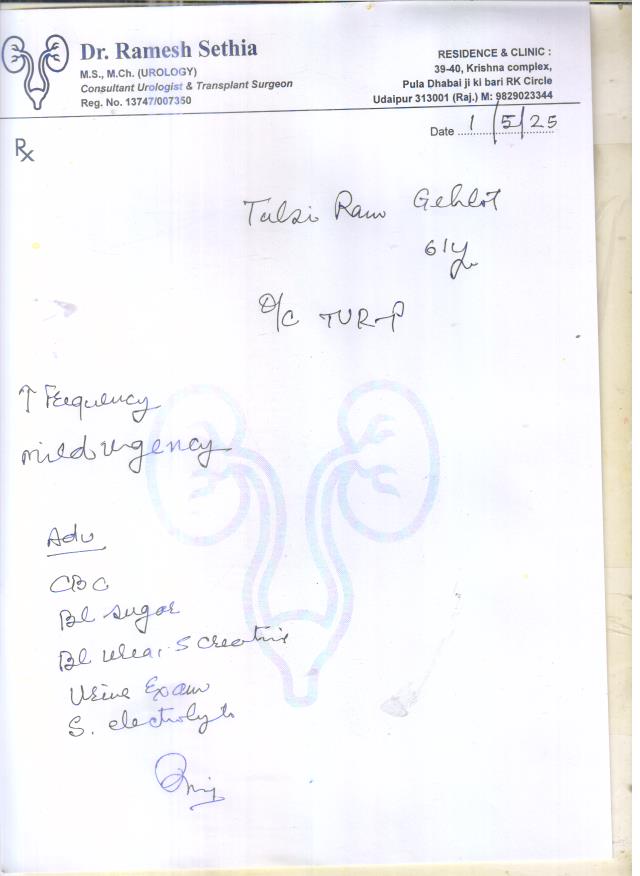 Dr. Ramesh Sethia
M.S., M.Ch. (UROLOGY)
Consultant Urologist & Transplant Surgeon
Reg. No. 13747/007350
RESIDENCE & CLINIC :
39-40, Krishna complex,
Pula Dhabai ji ki bari RK Circle
Udaipur 313001 (Raj.) M: 9829023344
Date 1/5/25
Rx
Tulsi Ram Gehlot
61y
O/C TUR-P
↑ Frequency
mild urgency
Adv
CBC
Bl sugar
Bl urea, S creatini
Urine Exam
S. electrolyts